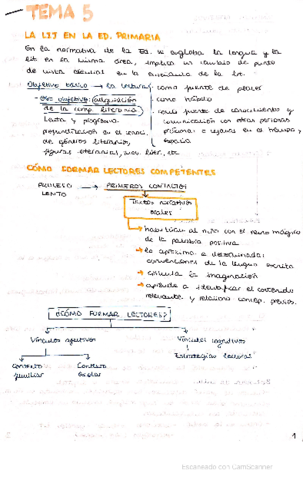 TEMA 5
LA LIT EN LA ED. PRIMARIA
En la normativa de la Ed. se engloba la lengua y la
lit en la misma área, implica un cambio de punto
de vista en la enseñanza de la lit.
Objetivo básico → la lectura
como fuente de placer
- Otro objetivo: adquisición
de la comp. literaria
como hábito
como fuente de conocimiento y
comunicación con otras personas
lenta y progresiva
próximas o lejanas en el tiempo y
espacio
profundización en el conoci.
de géneros literarios,
figuras literarias, etc
CÓMO FORMAR LECTORES COMPETENTES
PROCESO LENTO → PRIMEROS CONTACTOS
Textos narrativos
orales
habituar al niño con el reino mágico
de la palabra poética
lo aproxima a determinadas
convenciones de la lengua escrita
estimula la imaginación
aprende a identificar el contenido
relevante y relaciona concep. previos.
¿CÓMO FORMAR LECTORES?
Vínculos afectivos
Vínculos cognitivos
Estrategias lectoras
Contexto
familiar
Contexto
escolar
1
Escaneado con CamScanner